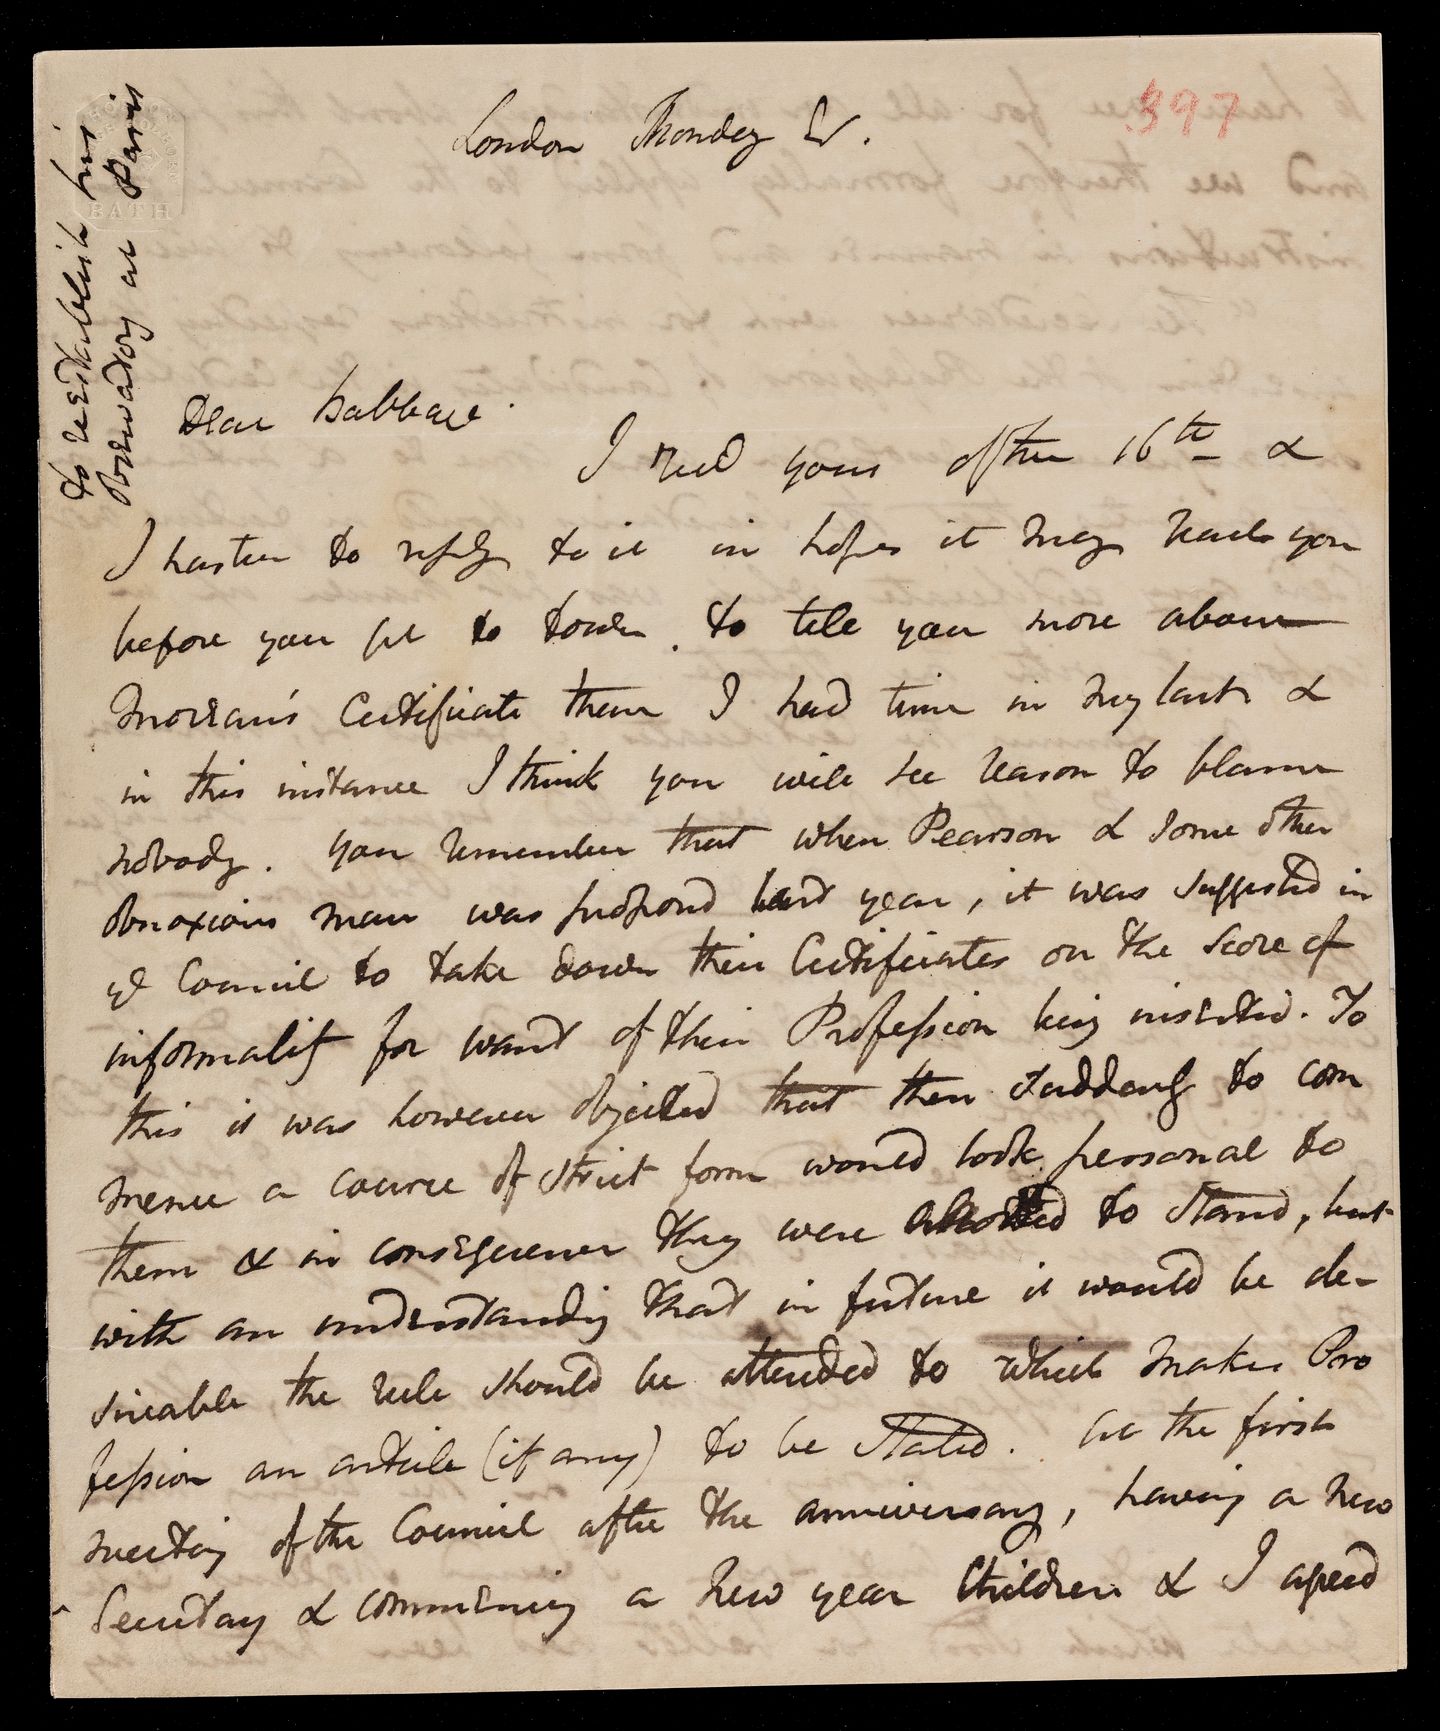 397
London Monday Ev.
to reestablish his
Observatory at Paris
BATH
Dear Babbage.
I recd yours of the 16th &
I hasten to reply to it in hopes it may reach you
before you get to town. to tell you more about
certificate than I had time in my last &
in this instance I think you will see reason to blame
nobody. You remember that when Pearson & some other
obnoxious man was proposed last year, it was suggested in
ye Council to take down their Certificates on the score of
informality for want of their Profession being inserted. To
this it was however objected that then suddenly to com
mence a course of strict form would look personal to
them & in consequence they were allowed to stand, but
with an understanding that in future it would be de-
sireable the rule should be attended to which makes Pro
fession an article (if any) to be stated. At the first
meeting of the Council after the anniversary, having a new
Secretary & commencing a new year Children & I agreed